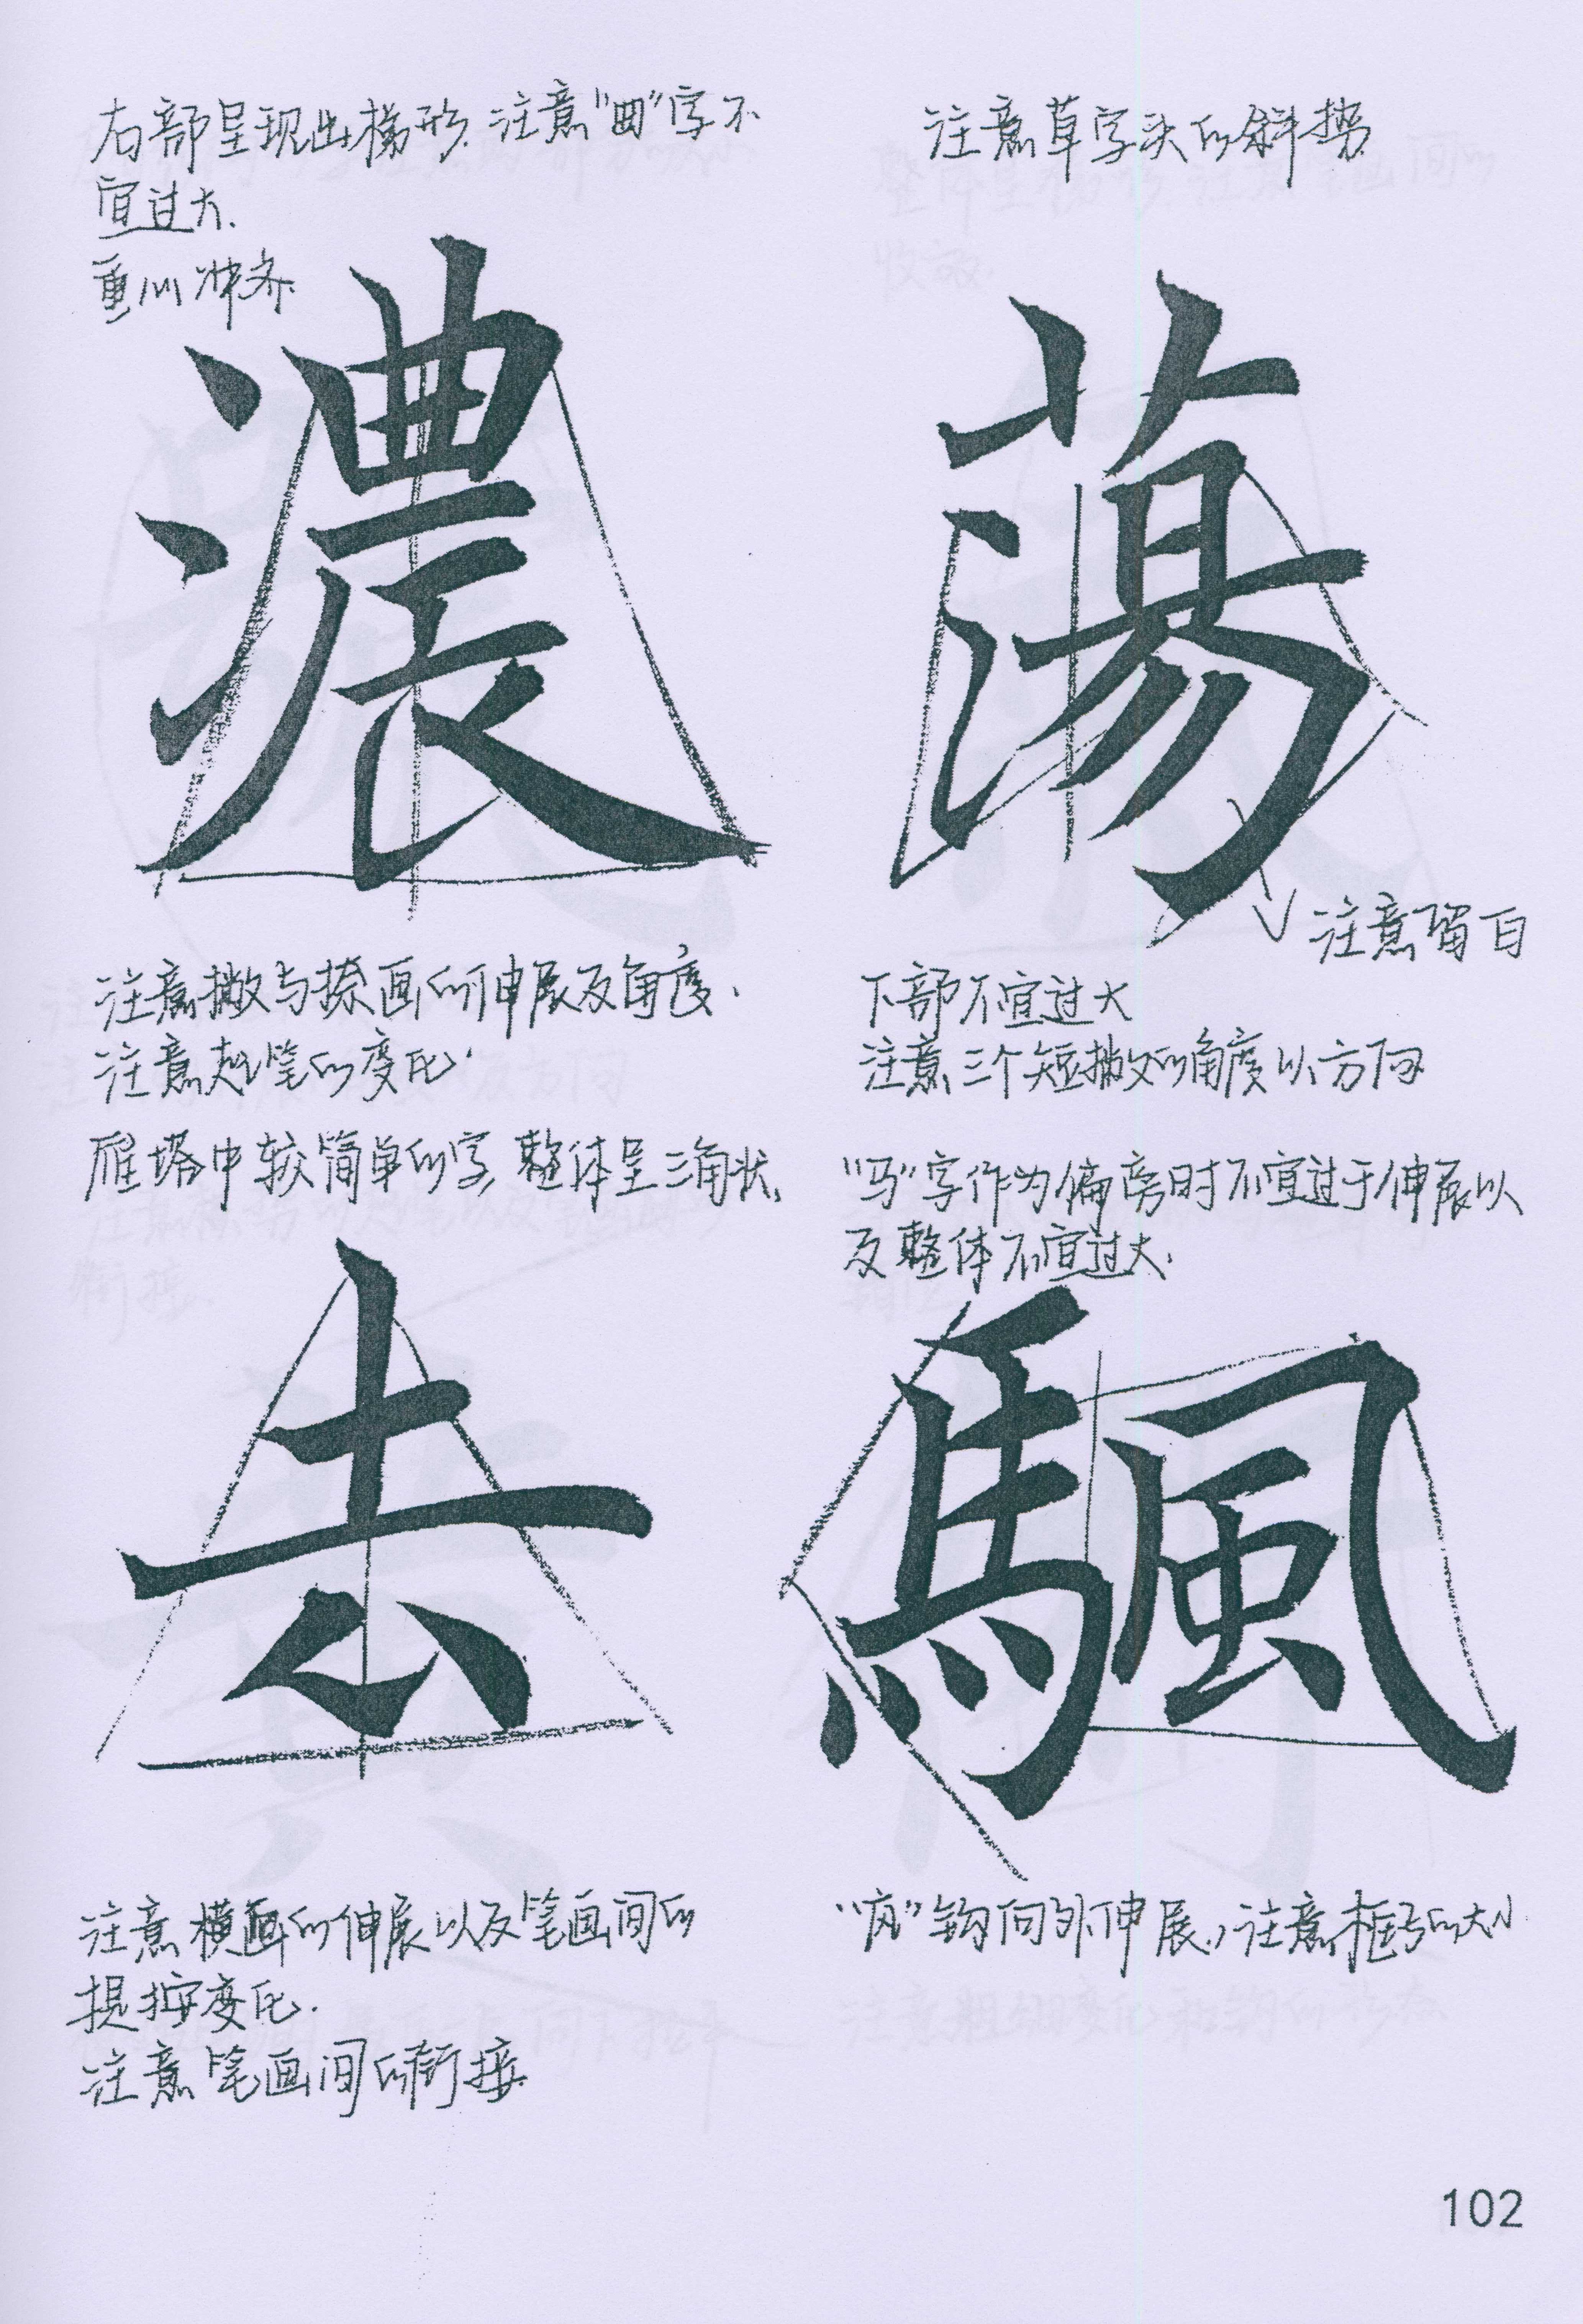 右部呈现出梯形.注意“曲”字不
宜过大.
重心对齐.
濃
注意撇与捺画的伸展及角度.
注意起笔的变化.
注意草字头的斜势.
蕩
注意留白
下部不宜过大
注意三个短撇的角度以方向
雁塔中较简单的字,整体呈三角状,
去
注意横画的伸展以及笔画间的
提按变化.
注意笔画间的衔接.
“马”字作为偏旁时不宜过于伸展以
及整体不宜过大.
颿
钩向外伸展,注意框的大小.
102